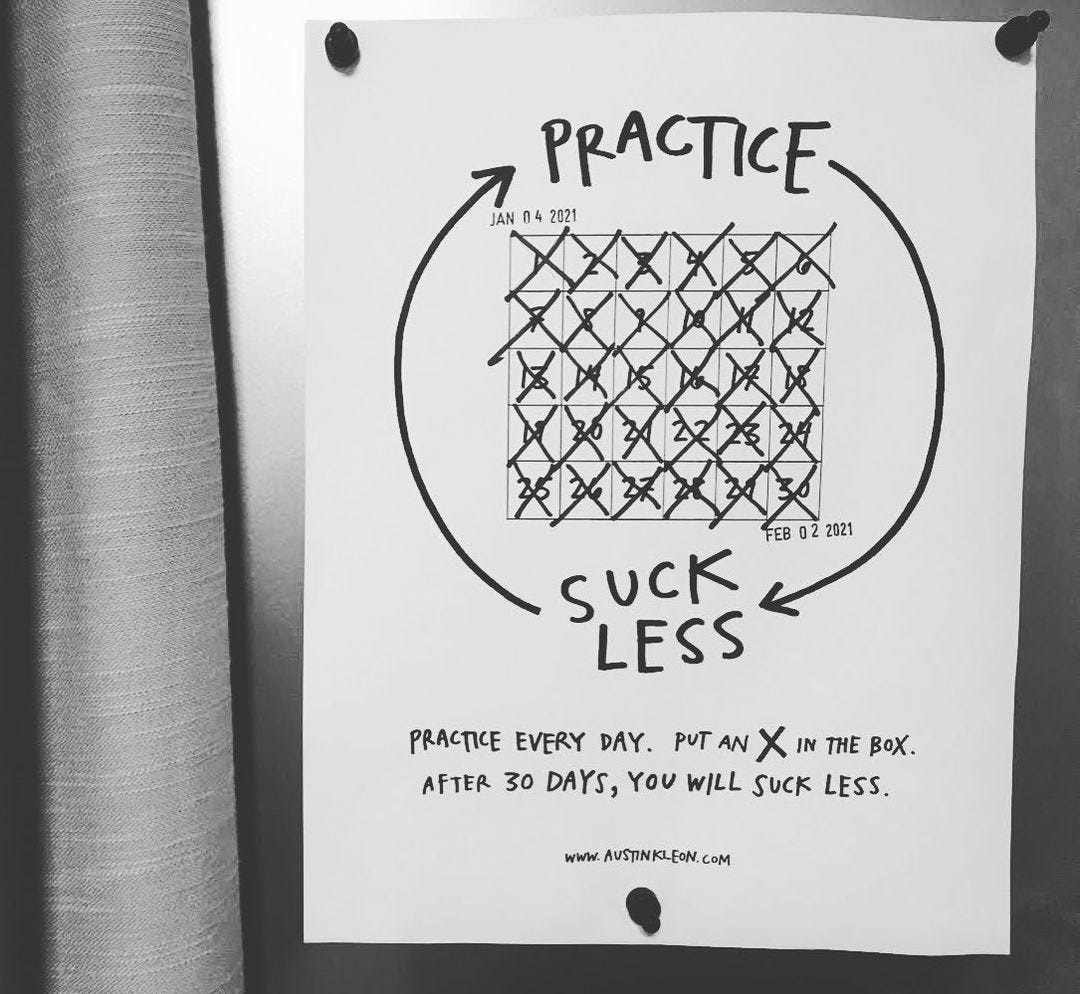 PRACTICE
JAN 04 2021
1 2 3 4 5 6
7 8 9 10 11 12
13 14 15 16 17 18
19 20 21 22 23 24
25 26 27 28 29 30
FEB 02 2021
SUCK
LESS
PRACTICE EVERY DAY. PUT AN X IN THE BOX.
AFTER 30 DAYS, YOU WILL SUCK LESS.
WWW.AUSTINKLEON.COM